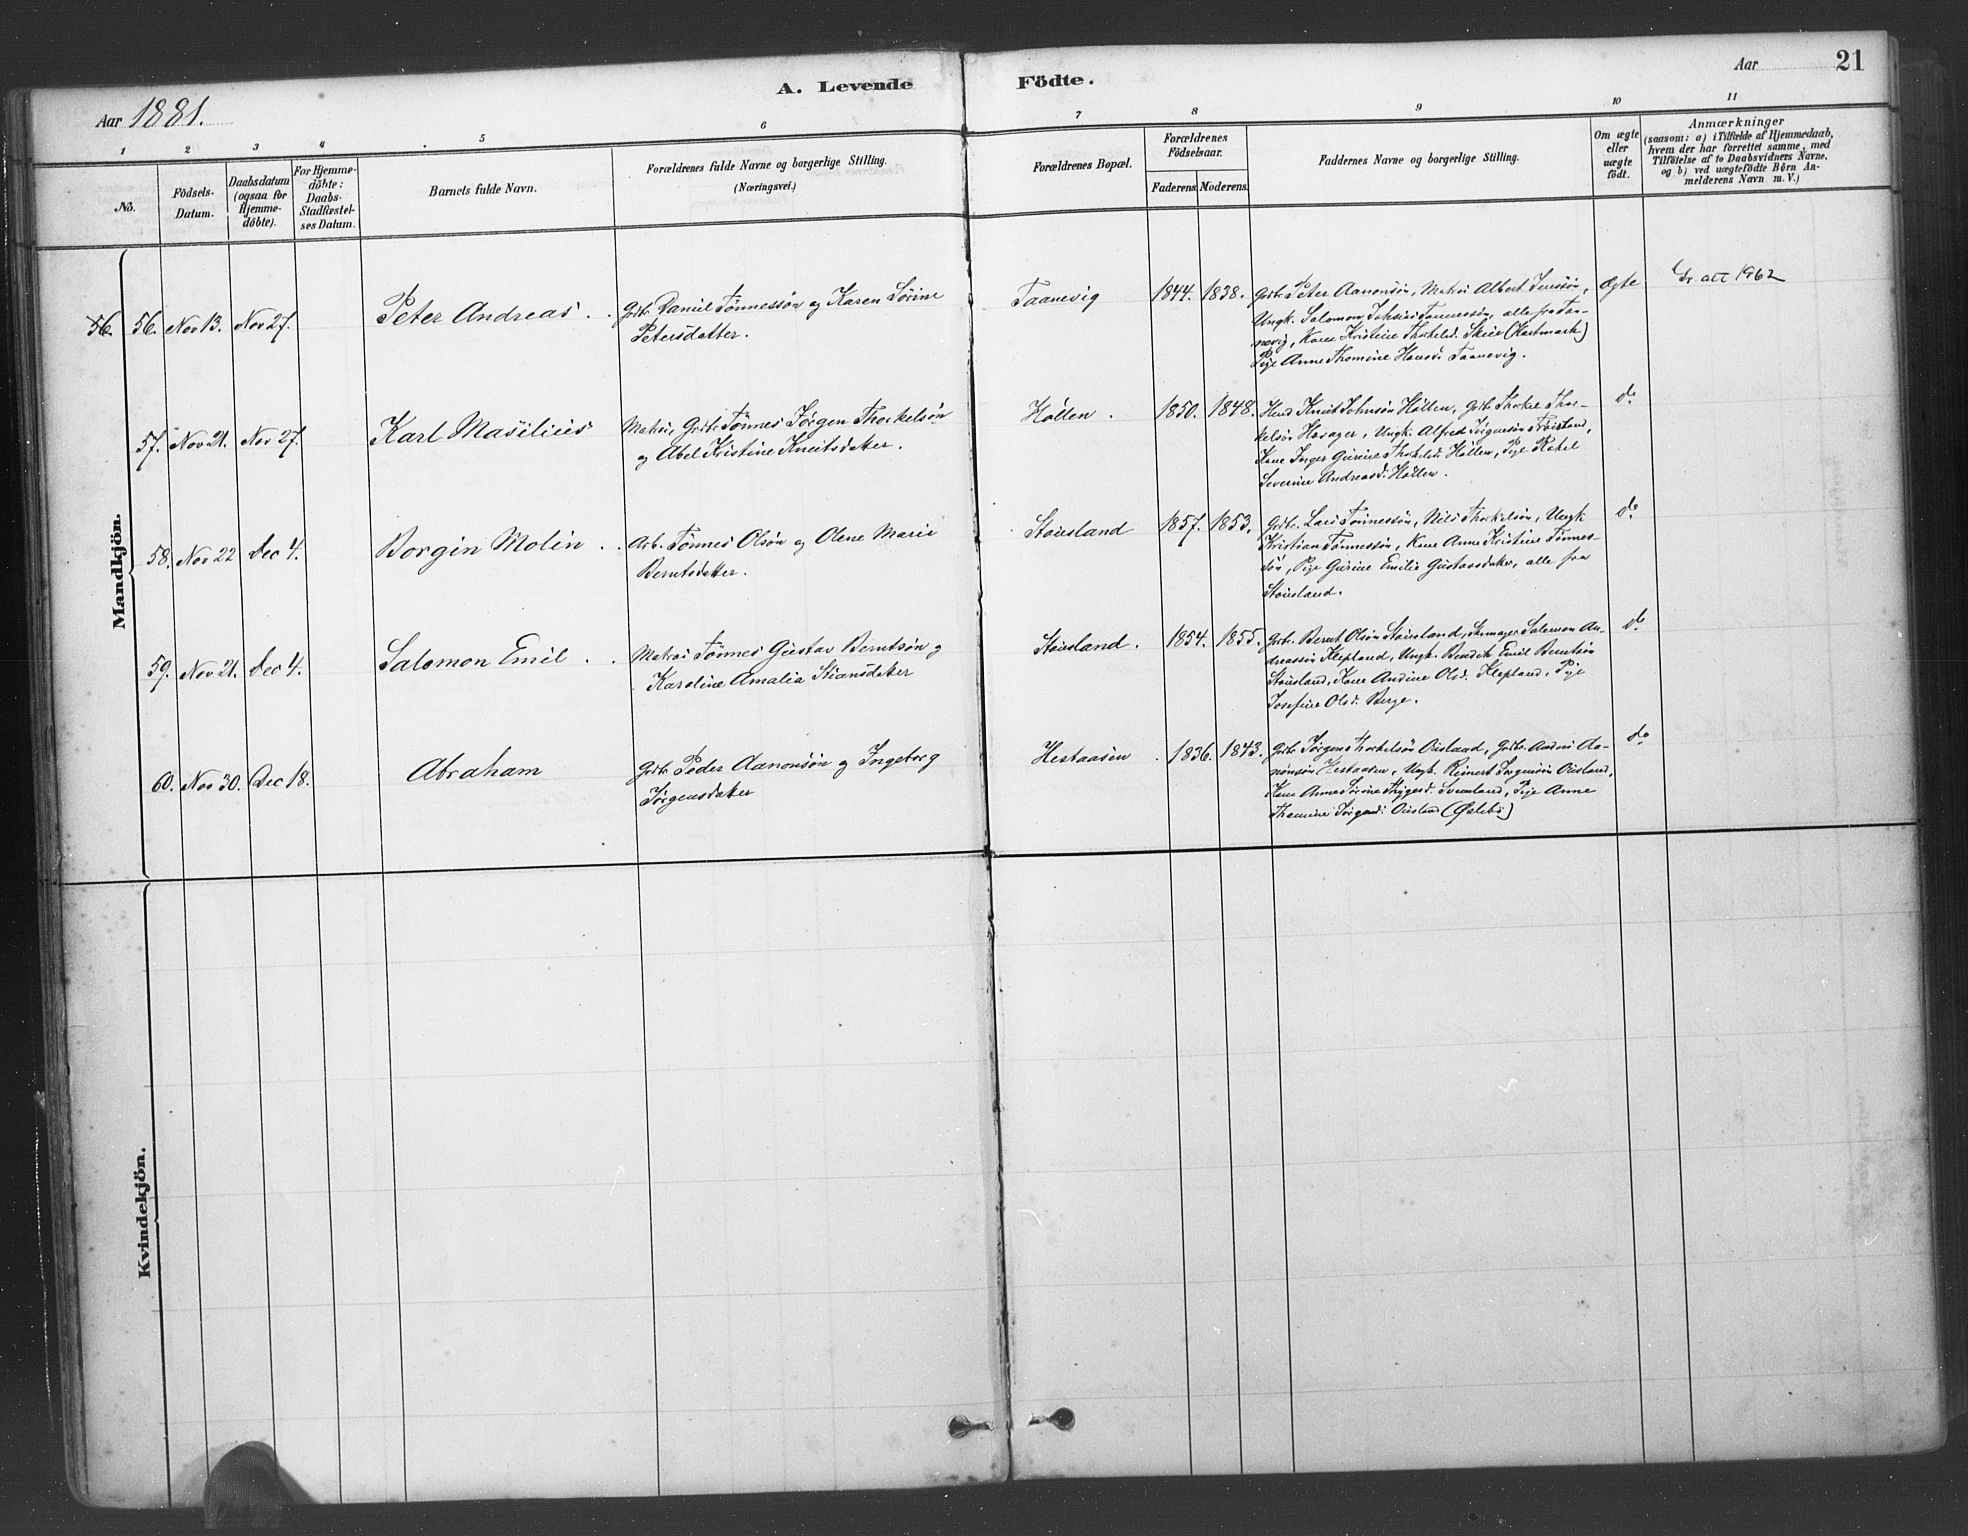 A. Levende Födte.
Aar 21
Aar 1881.
1 2 3 4 5 6 7 8 9 10 11
No.
Födsels-
Datum.
Daabsdatum
(ogsaa for
Hjemme-
döbte).
For Hjemme-
döbte:
Daabs-
Stadfæstel-
ses Datum.
Barnets fulde Navn.
Forældrenes fulde Navne og borgerlige Stilling.
(Næringsvei.)
Forældrenes Bopæl.
Forældrenes
Födselsaar.
Faderens. Moderens.
Faddernes Navne og borgerlige Stilling.
Om ægte
eller
uægte
födt.
Anmærkninger
(saasom: a) i Tilfælde af Hjemmedaab,
hvem der har forrettet samme, med
Tilföielse af to Daabsvidners Navne.
og b) ved uægtefödte Börn An-
melderens Navn m. V.)
Mandkjön.
56. 56. Nov 13. Nov 27. Peter Andreas. Grbr Daniel Tønnessøn og Karen Sørine
Petersdatter.
Taanevig 1844. 1838. Grbr Peter Aanonsøn, Matros Albert Jenssøn,
Ungk. Salomon Tønnessøn, alle fra Taa-
nevig, Kone Kristine Thorkelsd. Skeie (Hartmark)
Pige Anne Thomine Hansd. Taanevig.
Ægte
att 1962
57. Nov 21. Nov 27. Karl Masilius Matros, Grbr Tønnes Jørgen Thorkelsøn
og Abel Kristine Knutsdatter.
Höllen. 1850. 1848. Knud Johnsøn Höllen, Grbr Thorkel Thor-
kelsøn Havager, Ungk. Alfred Jørgensøn
Kone Inger Gurine Thorkelsd. Höllen, Pige Rakel
Severine Andreasd. Höllen.
do
58. Nov 22 Dec 4. Borgin Molin. Arb. Tønnes Olsøn og Olene Marie
Berntsdatter.
Stousland 1857. 1853. Grbr. Lars Tønnessøn, Nils Thorkelsøn, Ungk
Kristian Tønnessøn, Kone Anne Kristine Tønnes-
søn, Pige Gurine Emilie Gustavsdatter, alle fra
Stousland.
do
59. Nov 21. Dec 4. Salomon Emil. Matros Tønnes Gustav Berntsøn og
Karoline Amalia Stiansdatter
Stousland. 1854. 1855. Grbr. Bernt Olsøn Stousland, Skomager Salomon An-
dreassøn Klepland, Ungk. Bendik Emil Berntsøn
Stousland, Kone Andine Olsd. Klepland, Pige
Josefine Olsd. Berge.
do
60. Nov 30. Dec 18. Abraham Grbr Peder Aanonsøn og Ingeborg
Jørgensdatter
Hestaasen. 1836. 1843. Grbr Jørgen Thorkelsøn Ousland, Grbr. Anders Aa-
nonsøn Hestaasen, Ungk. Reinert Jørgensøn Ousland,
Kone Anne Sørine Thygesd. Pige Anne
Thomine Jørgensd. Ousland (Øslebø)
do
Kvindekjön.